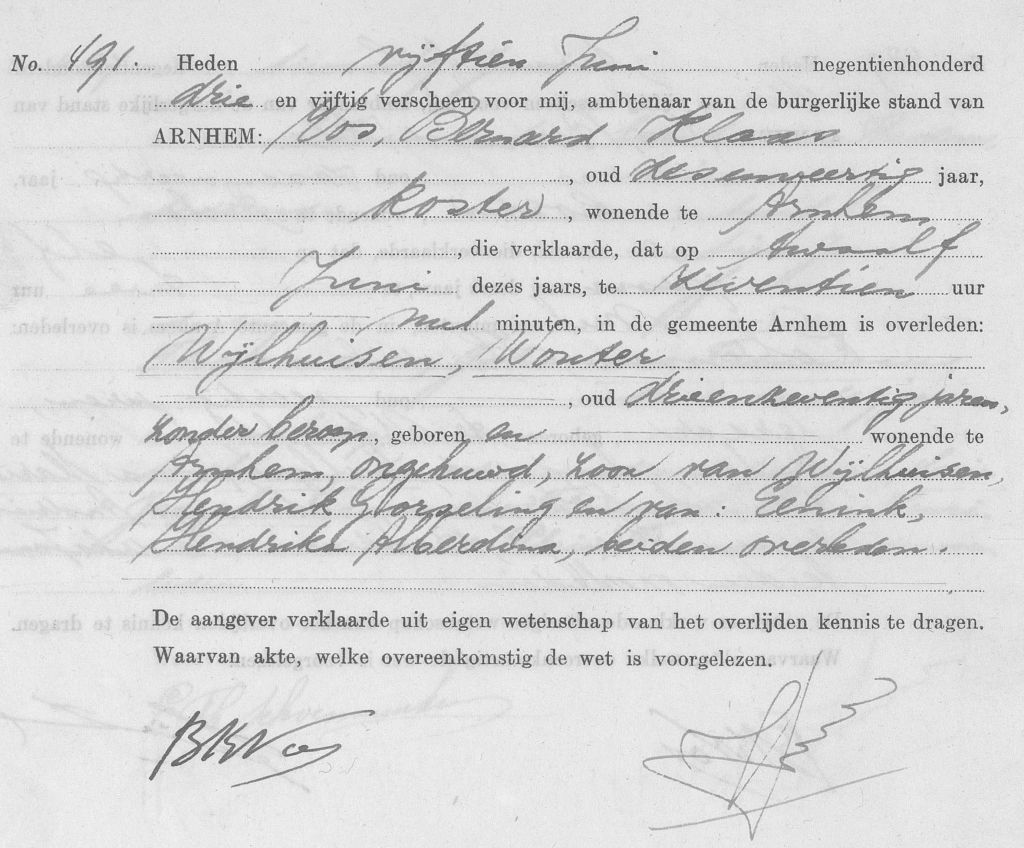 No. 491. Heden vijftien Juni negentienhonderd
drie en vijftig verscheen voor mij, ambtenaar van de burgerlijke stand van
ARNHEM: Vos, Bernard Klaas
, oud zesenveertig jaar,
koster, wonende te Arnhem
, die verklaarde, dat op twaalf
Juni dezes jaars, te zeventien uur
nul minuten, in de gemeente Arnhem is overleden:
Wijlhuisen, Wouter
, oud drieenzeventig jaren,
zonder beroep, geboren en wonende te
Arnhem, ongehuwd, zoon van Wijlhuisen,
Hendrik en van: Eenink,
Hendrika Alberdina, beiden overleden.
De aangever verklaarde uit eigen wetenschap van het overlijden kennis te dragen.
Waarvan akte, welke overeenkomstig de wet is voorgelezen.
BKVos